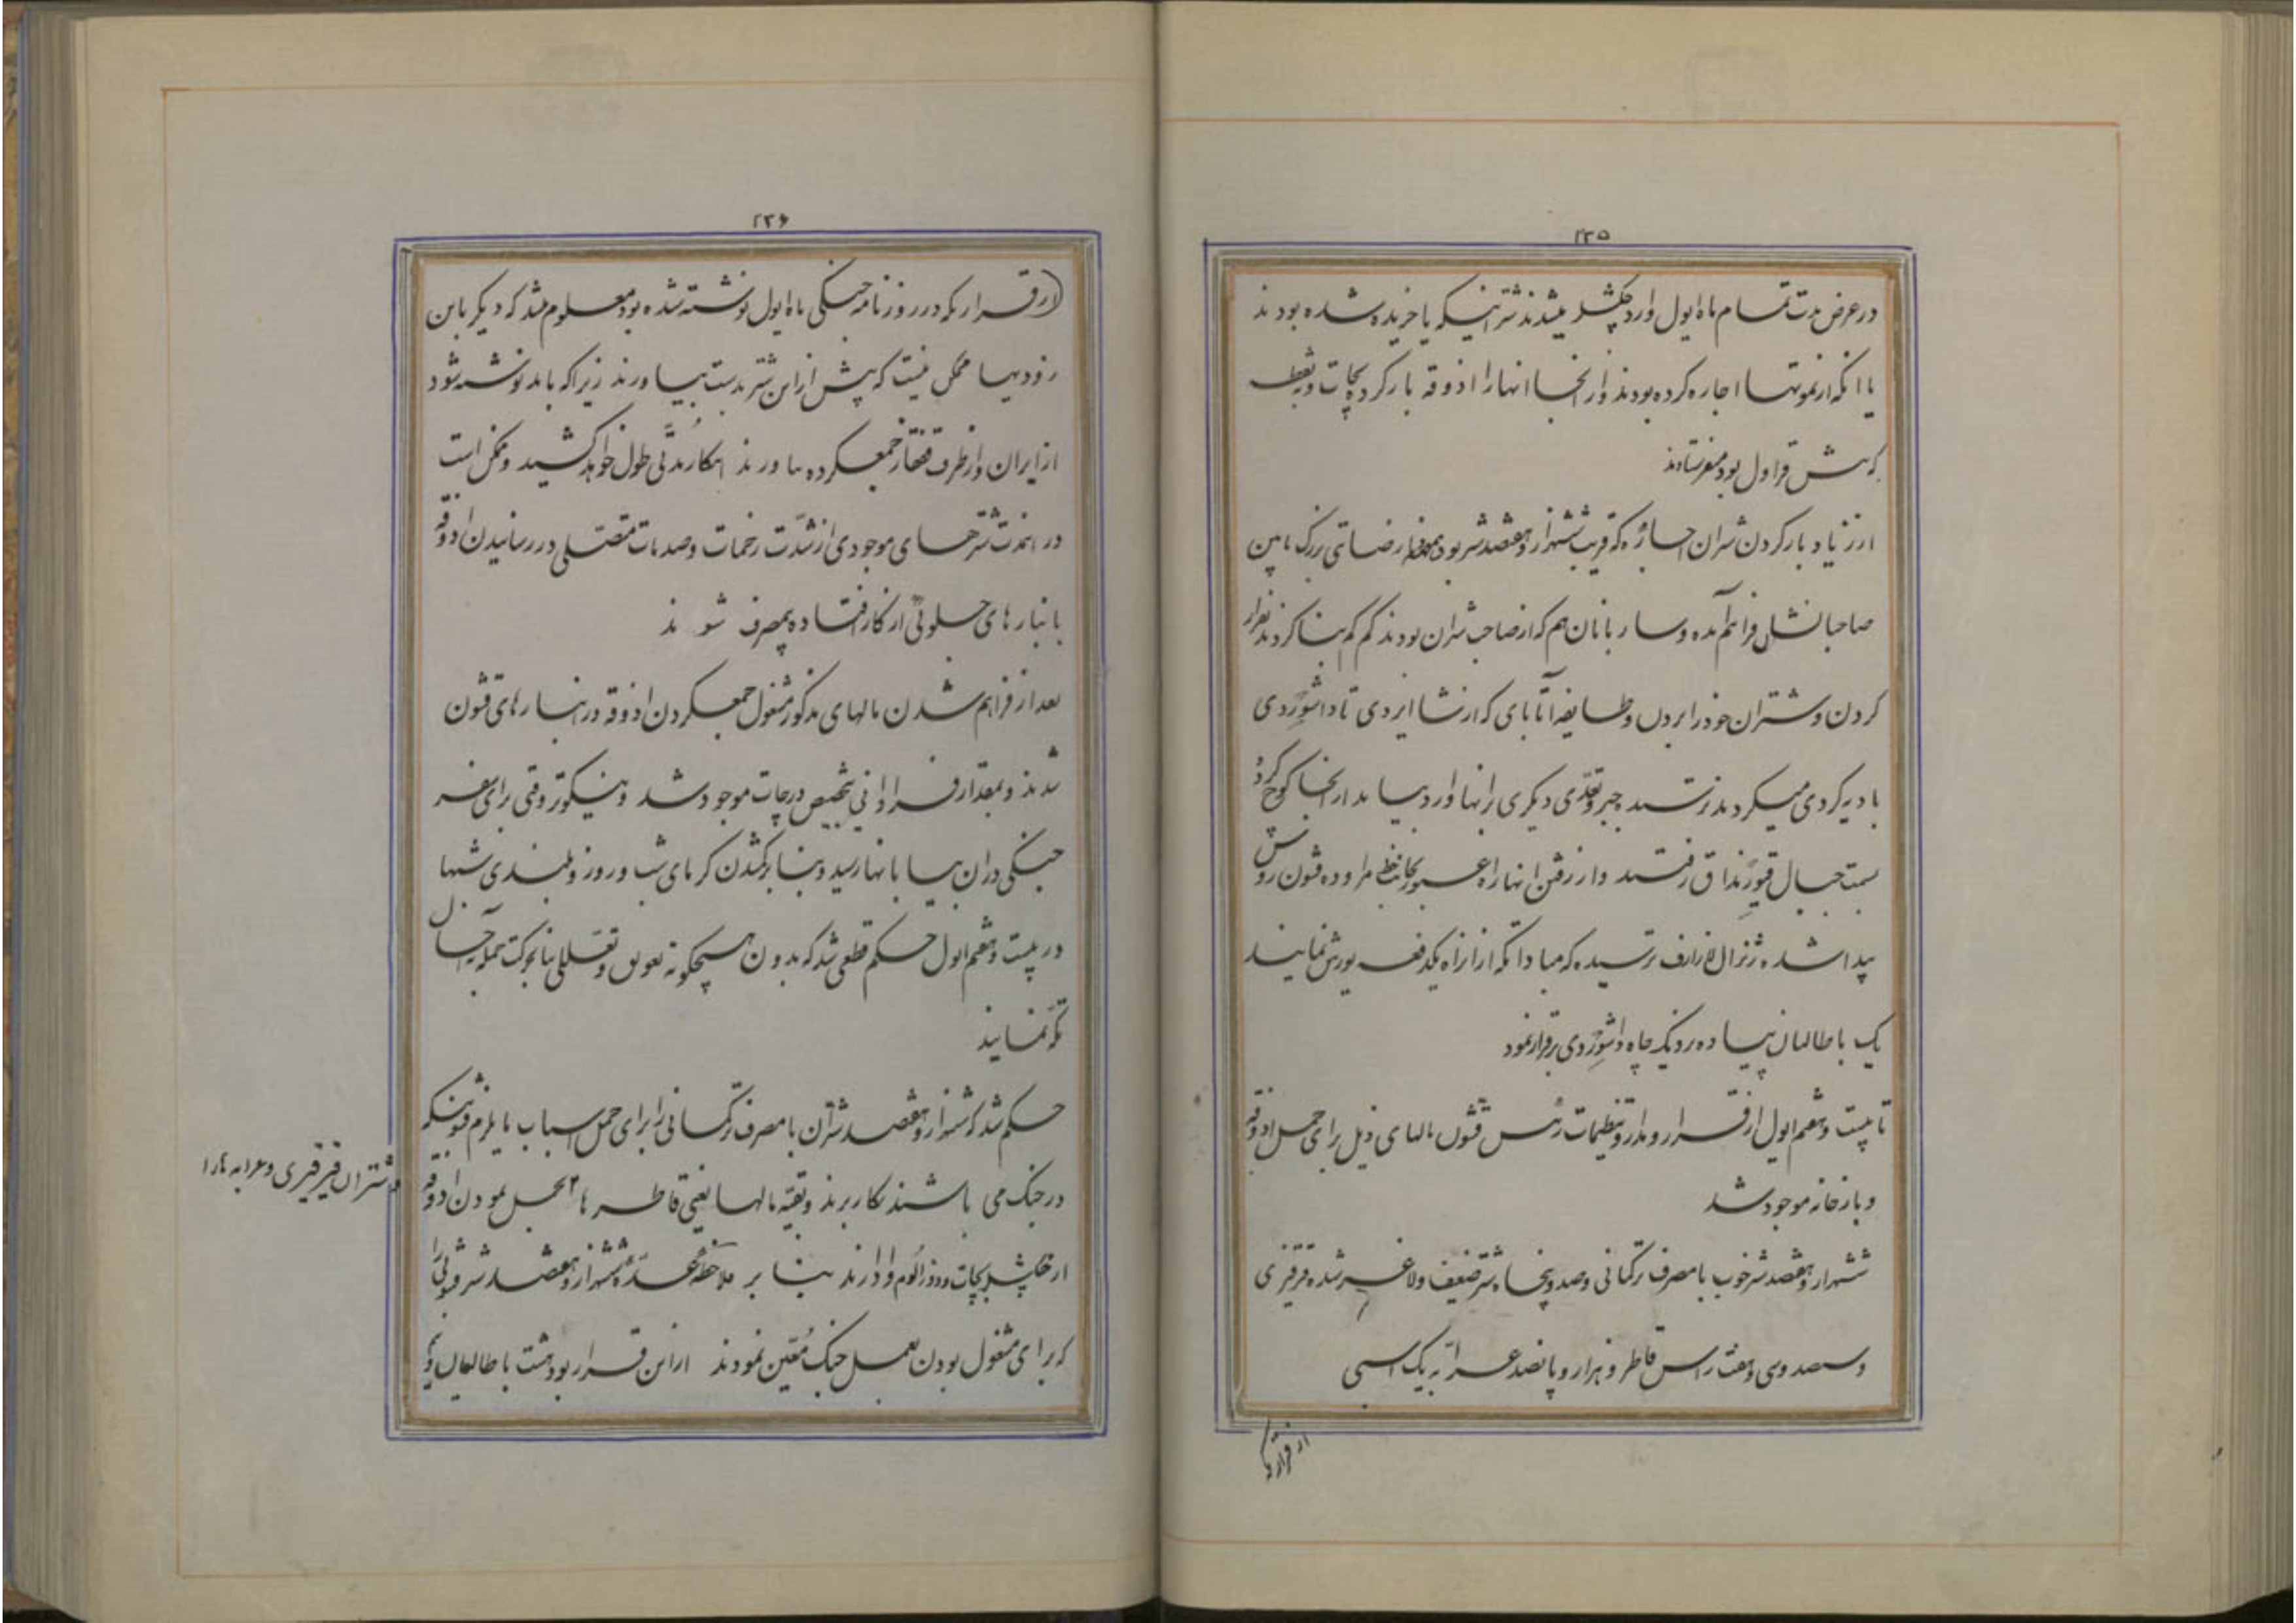 ۲۳۵
در عرض مدت تمام ماه ایول وارد چکشلر میشدند شترانیکه یا خریده شده بودند
یا انکه از یموتها اجاره کرده بودند و از انجا انها را اذوقه بار کرده بچات و نقطه
که پیش قراول بود میفرستادند
از زیاد بار کردن شتران اجاره که قریب ششهزار و هفتصد شتر بود نارضامندی بزرگ مابین
صاحبانشان فراهم آمده و ساربانان هم که از صاحب شتران بودند کم کم بنا کردند بفرار
کردن و شتران خود را بردن و طایفه آتابای که از نشا ایردی تا داشوِردی
بادیه گردی میکردند ترسیدند جبر و تعدی دیگری بر انها وارد بیاید از انجا کوچ کرده
بسمت جبال قیورنداق رفتند و از رفتن انها راه عبور بجانب خط مراوده قشون روس
پیدا شده ژنرال لازارف ترسیده که مبادا تکه از ان راه یکدفعه یورش نمایند
یک باطالیان پیاده نزدیک چاه داشوِردی برقرار نمود
تا بیست و هفتم ایول از قرار و مدار و تنظیمات رئیس قشون مالهای ذیل برای حمل اذوقه
و بارخانه موجود شد
ششهزار و هفتصد شتر خوب بامصرف ترکمانی و صد و پنجاه شتر ضعیف و لاغر شده قرقیزی
و سیصد و سی و هفت راس قاطر و هزار و پانصد عرّابه یک اسبی
از قراریکه
۲۳۶
(از قراریکه در روزنامه جنگی ماه ایول نوشته شده بود معلوم میشد که دیگر باین
زودیها ممکن نیست که بیش از این شتر بدست بیاورند زیرا که باید نوشته شود
از ایران و از طرف قفقاز جمع کرده بیاورند اینکار مدّتی طول خواهد کشید و ممکن است
در انمدت شترهای موجودی از شدّت زحمات و صدمات متصلی در رسانیدن اذوقه
بانبارهای جلوئی از کار افتاده بیمصرف شوند
بعد از فراهم شدن مالهای مذکور مشغول جمع کردن اذوقه در انبارهای قشون
شدند و بمقدار فراوانی بتخصیص در چات موجود شد و نیکوتر وقتی برای سفر
جنگی در ان بیابانها رسید و بنا بر کم شدن گرمای شب و روز و بلندی شبها
در بیست و هفتم ایول حکم قطعی شد که بدون هیچگونه تعویق و تعللی بنا بحرکت حمله به آخال
تکه نمایند
حکم شد که ششهزار و هفتصد شتران بامصرف ترکمانی را برای حمل اسباب مایلزم قشونیکه
در جنگ می باشند بکار برند و بقیّه مالها یعنی قاطرها بحمل نمودن اذوقه
و شتران قیرقیزی و عرابه ها را
از چکشلر بچات و دوز الوم وادارند بنا بر ملاحظه عدّه ششهزار و هفتصد شتر قشونی را
که برای مشغول بودن بعمل جنگ مُعیّن نمودند از این قرار بود هشت باطالیان و نیم